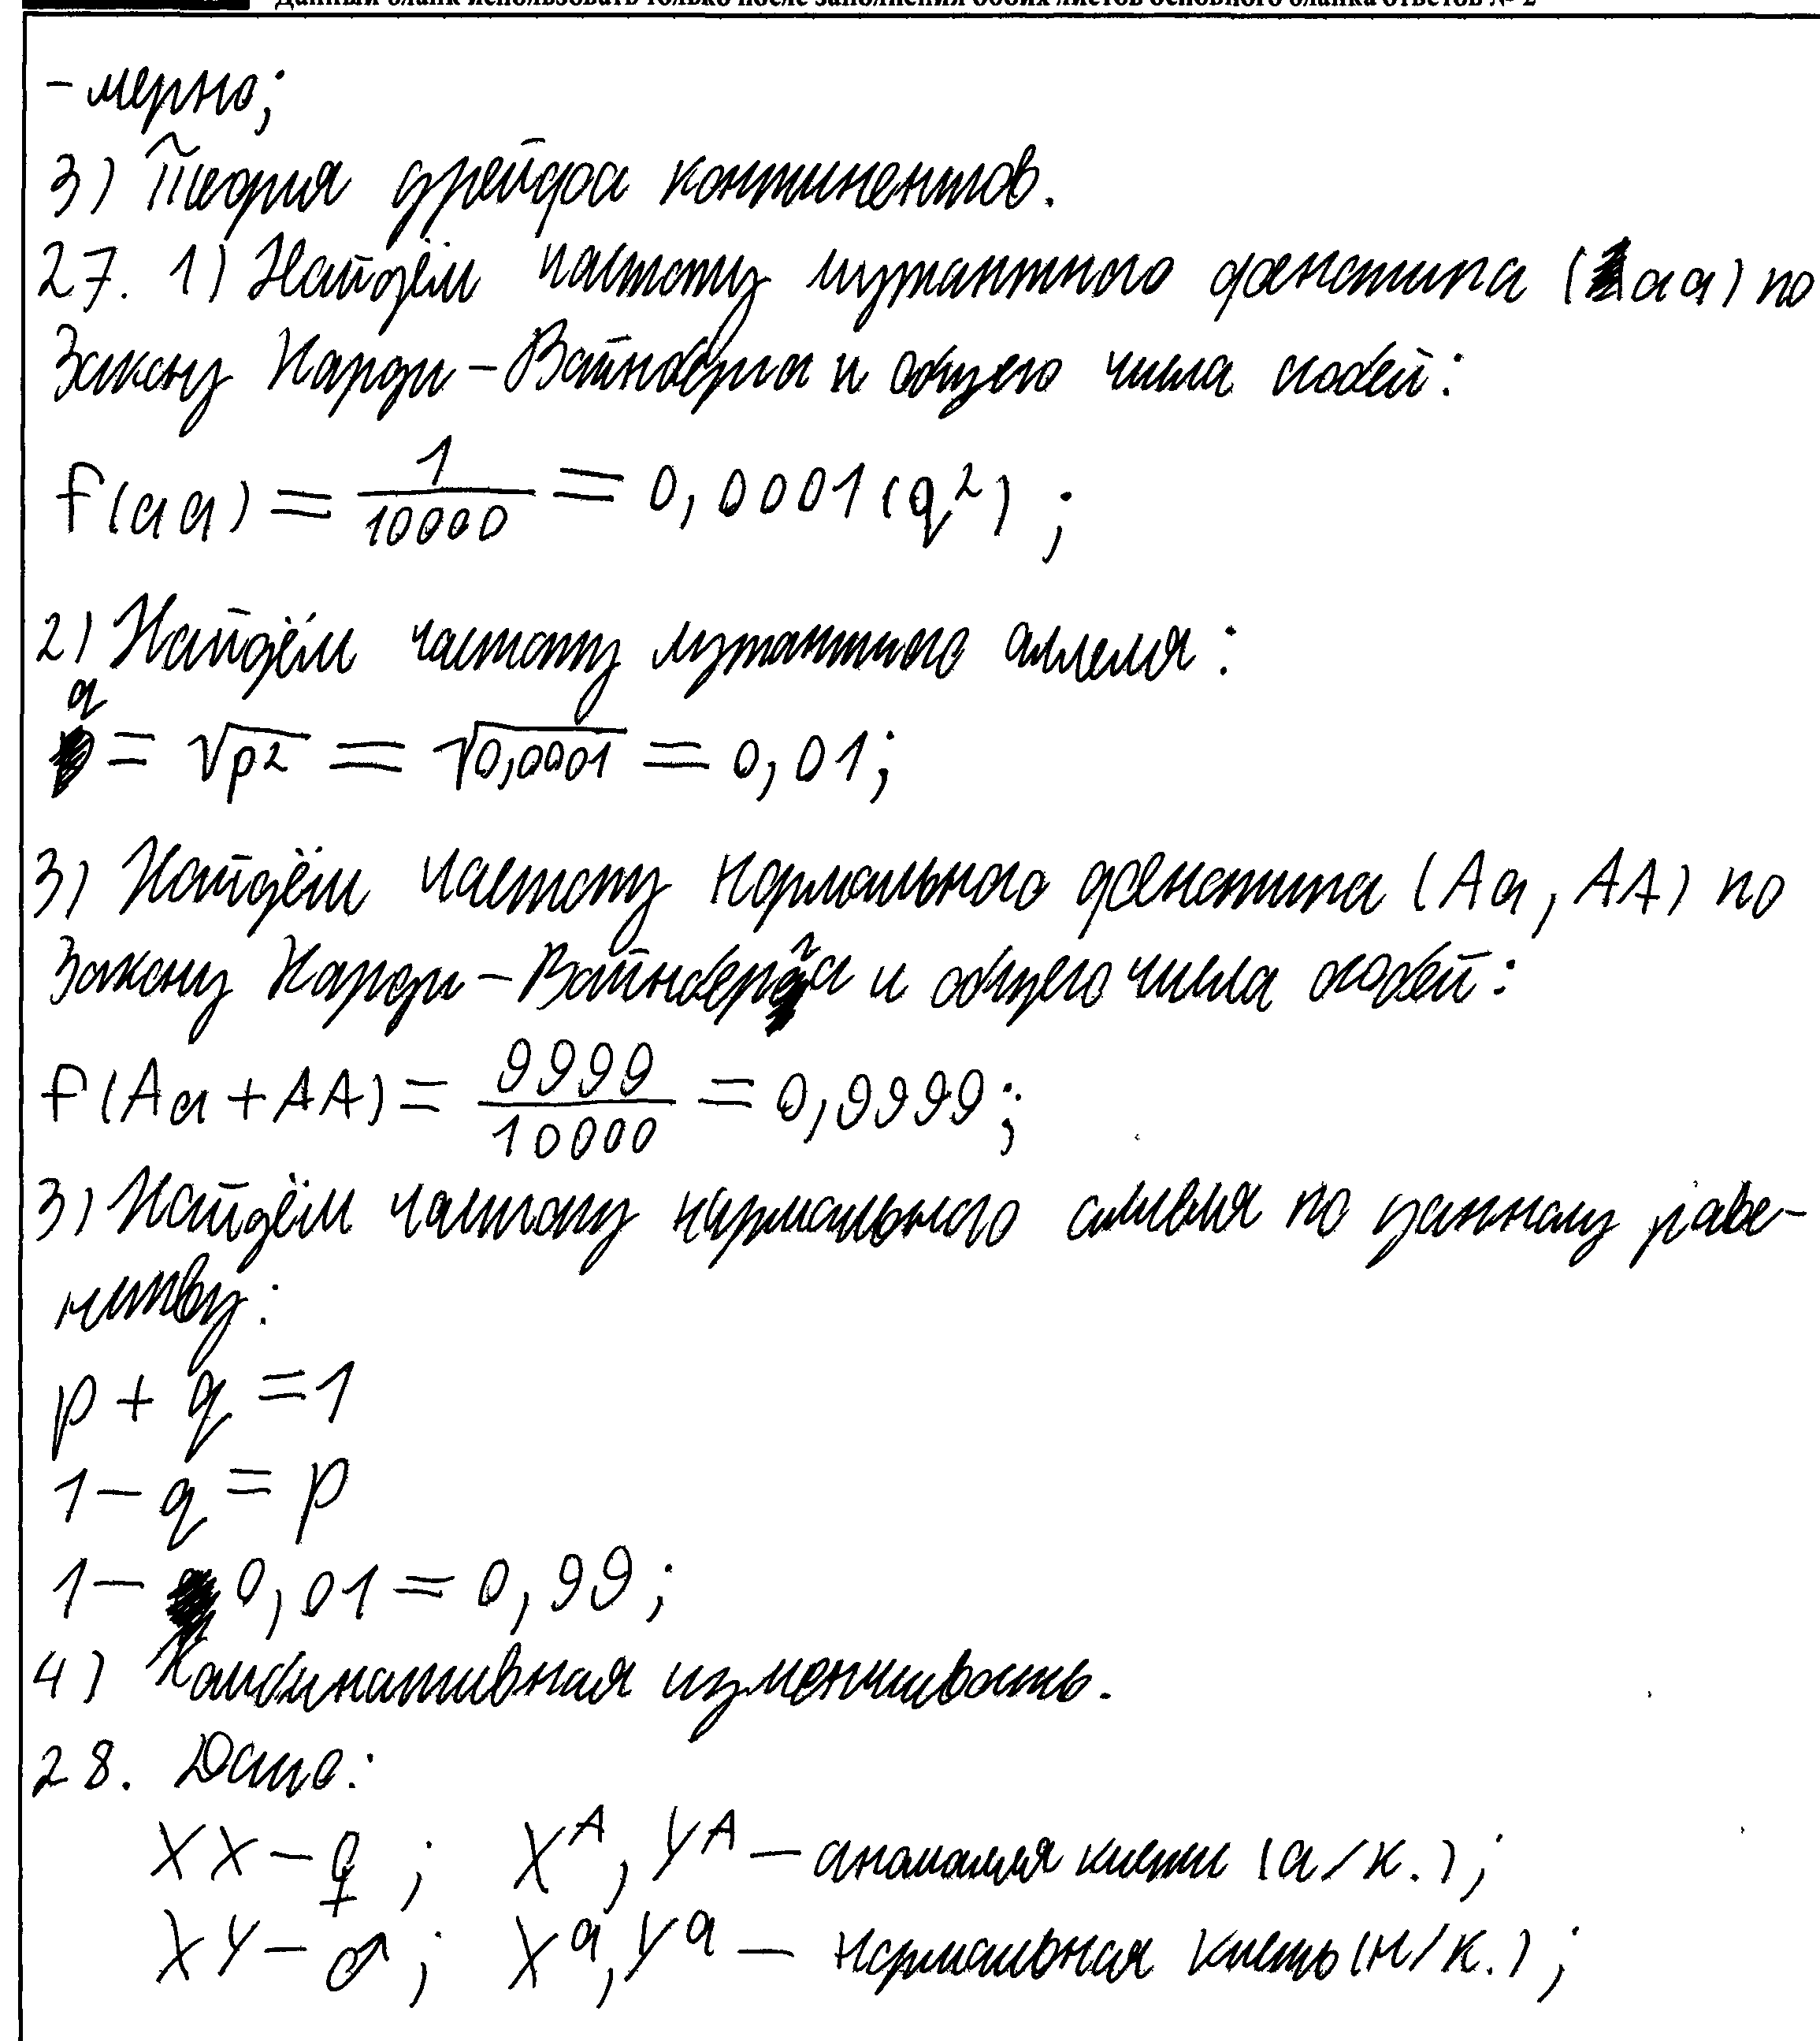 Данный бланк использовать только после заполнения обоих листов основного бланка ответов № 2
-мерно;
3) Теория дрейфа континентов.
27. 1) Найдём частоту мутантного фенотипа (aa) по
закону Харди-Вайнберга и общего числа особей:
f(aa) = 1/10000 = 0,0001 (q²) ;
2) Найдём частоту мутантного аллеля:
q = √p² = √0,0001 = 0,01;
3) Найдём частоту нормального фенотипа (Aa, AA) по
закону Харди-Вайнберга и общего числа особей:
f(Aa + AA) = 9999/10000 = 0,9999;
3) Найдём частоту нормального аллеля по данному раве-
нству:
p + q = 1
1 - q = p
1 - 0,01 = 0,99;
4) Комбинативная изменчивость.
28. Дано:
XX - ♀ ; Xᴬ, Yᴬ - аномалия кисти (а/к.);
XY - ♂ ; Xᵃ, Yᵃ - нормальная кисть (н/к.);